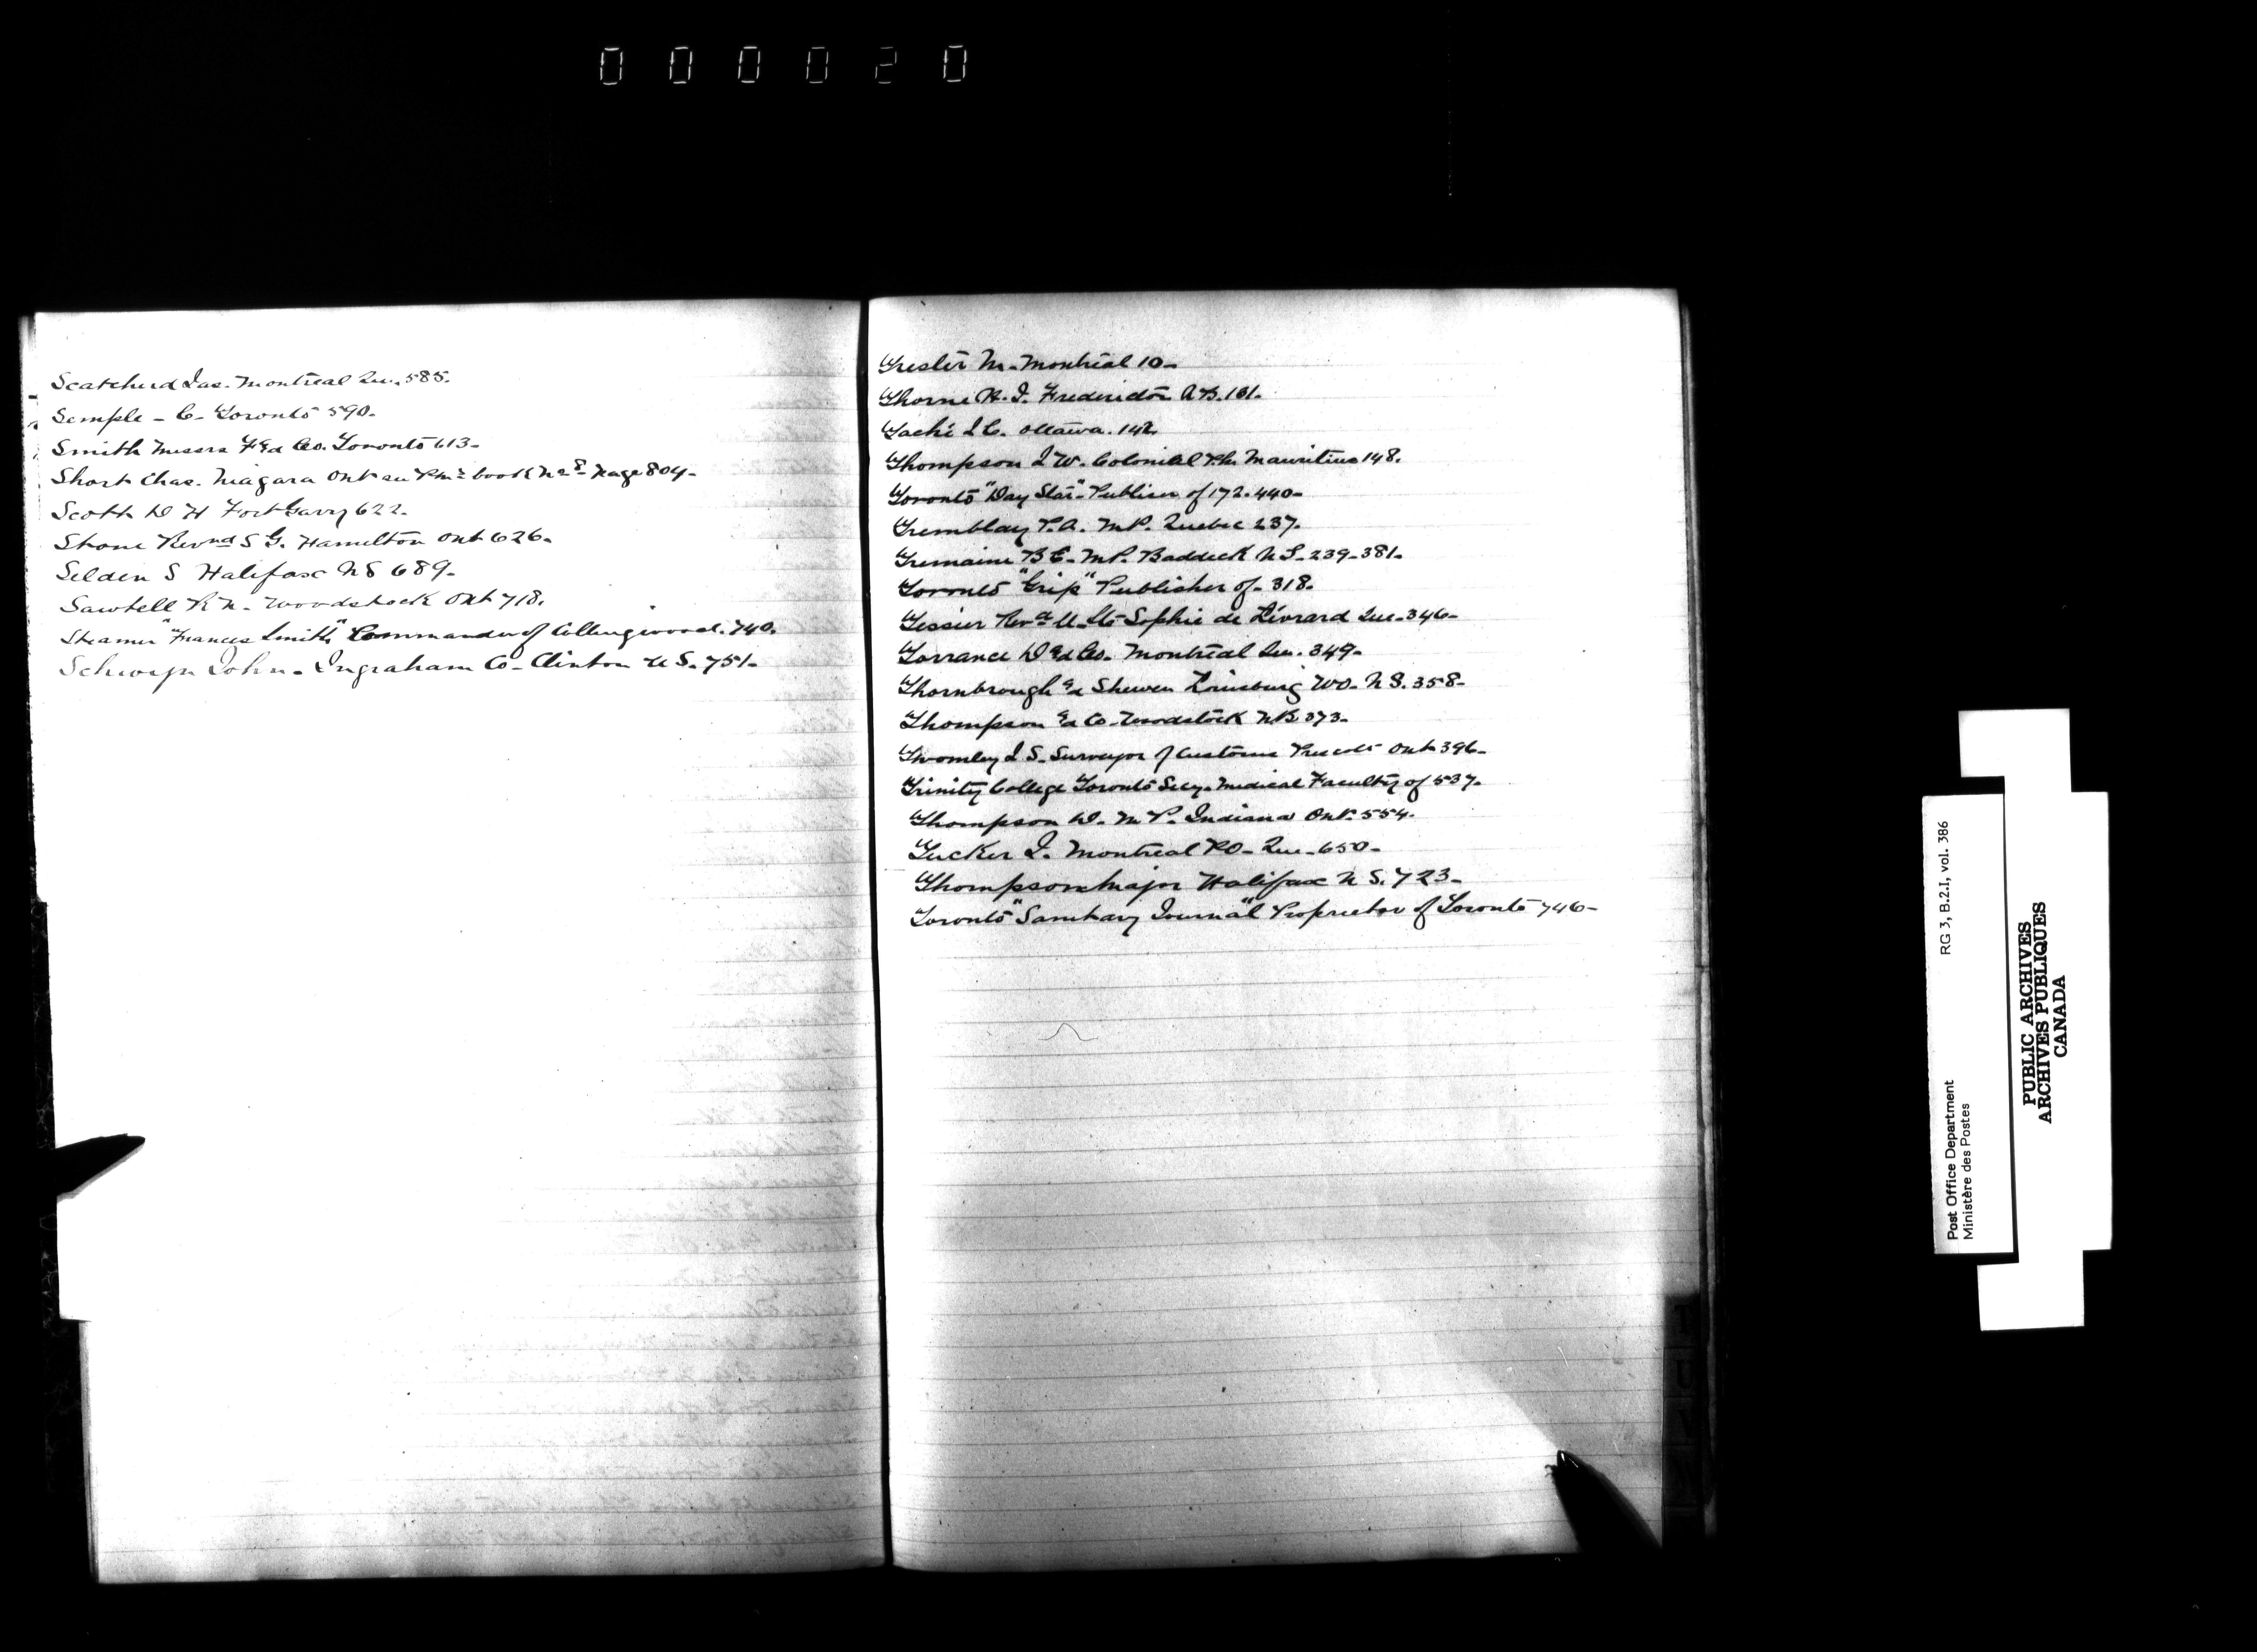 000020
Scatcherd Jas. Montreal Que. 585.
Semple - C- Toronto 590.
Smith Messrs F & Co. Toronto 613-
Short Chas. Niagara Ont su book No 8 Page 804-
Scott D H Fort Garry 622.
Stone Revnd S G. Hamilton Ont 626.
Selden S Halifax NS 689-
Sawtell R N- Woodstock Ont 718.
Steamer "Frances Smith" Commander of Collingwood. 740.
John- Ingraham Co- Clinton U S. 751-
Trester M- Montreal 10-
Thorne H. I. Fredericton 131.
Taché J C. Ottawa. 142.
Thompson J W. Colonial Mauritius 148.
Toronto "Day Star" Publiser of 172. 440-
Tremblay P. A. M P. Quebec 237.
Tremaine B E- M P. Baddeck N S- 239-381-
Toronto "Grip" Publisher of- 318.
Tessier Revd U- Ste Sophie de Lévrard Que- 346-
Torrance D & Co. Montreal Que. 349-
Thornbrough & Shewen WO- N S. 358-
Thompson & Co- Woodstock N B 373-
J S- Surveyor of Customs Prescott Ont 396-
Trinity College Toronto Secy- Medical Faculty of 537.
Thompson D- M P. Indiana Ont. 554.
Tucker J. Montreal P O- Que- 650-
Thompson Major Halifax N S. 723-
Toronto "Sanitary Journal" Proprietor of Toronto 746-
RG 3, B.2.I, vol. 386
Post Office Department
Ministère des Postes
PUBLIC ARCHIVES
ARCHIVES PUBLIQUES
CANADA
T
U
V